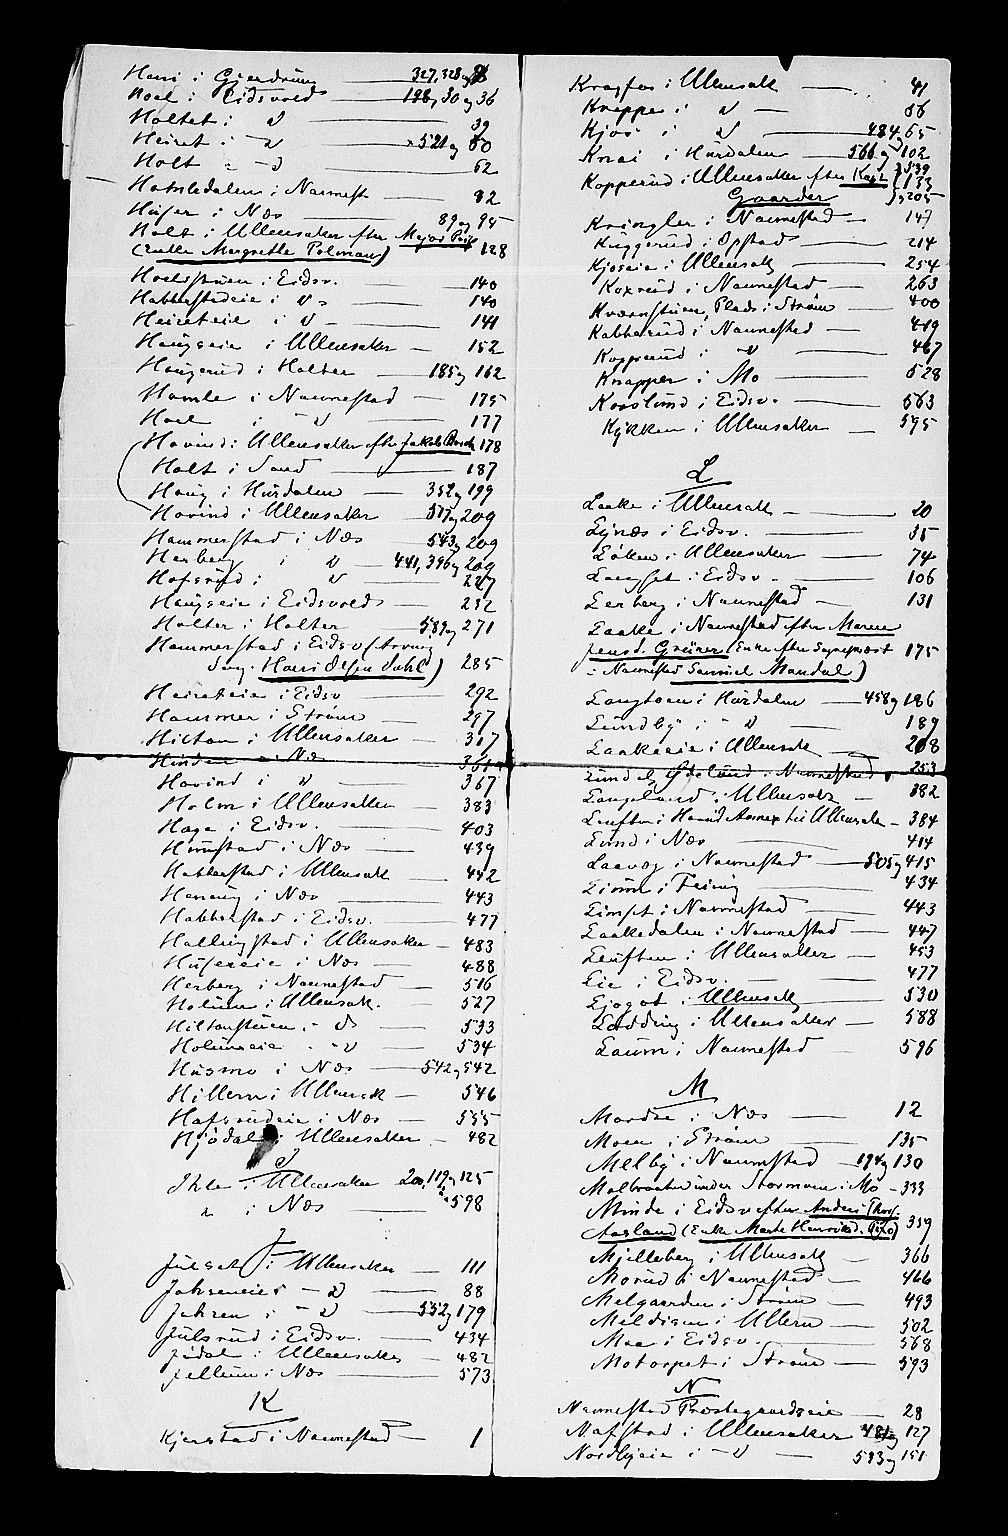 Hæni i Gjerdrum — 327, 328 og
Hoel i Eidsvold — 198, 30 og 36
Holtet i d — 39
Heiret i d — 521 og 60
Holt - d — 62
Homledalen i Nannest — 82
Huser i Næs — 89 og 95
Holt i Ullensaker efter Major
(Enke Margrethe Polman) 128
Hoelsstuen i Eidsv. — 140
Habberstadeie i d — 140
Heireteie i d — 141
Haugseie i Ullensaker — 152
Haugerud i Holter — 185 og 162
Homle i Nannestad — 175
Hoel i d — 177
Hovind i Ullensaker efter Jakob 178
Holt i Sand — 187
Haug i Hurdalen — 352 og 199
Hovind i Ullensaker — 517 og 209
Hammerstad i Næs — 543 og 209
Herberg i d — 441, 396 og 209
Hofsrud i d — 227
Haugseie i Eidsvold — 232
Holter i Holter — 589 og 271
Hammerstad i Eidsv
285
Heireteie i Eidsv — 292
Hammer i Strøm — 297
Hilton i Ullensaker — 317
i Næs — 361
Hovind i d — 367
Holm i Ullensaker — 383
Haga i Eidsv. — 403
i Næs — 439
Habberstad i Ullensak — 442
i Næs — 443
Habberstad i Eidsv. — 477
Hallingstad i Ullensaker — 483
Husereie i Næs — 488
Herberg i Nannestad — 516
Holum i Ullensak. — 527
Hiltonstuen - d — 533
Holumseie - d — 534
Husmo i Næs — 542 og 542
Hillern i Ullensak — 546
Hofsrudeie i Næs — 555
Hjødal i Ullensaker — 482
I
Ihle i Ullensaker 20, 119 og 125
" i Næs — 598
J
Julset i Ullensaker — 111
Jahreneie i - d — 88
Jahren i - d — 552 og 179
Julsrud i Eidsv. — 434
Jødal i Ullensaker — 482
Jellum i Næs — 573
K
Kjerstad i Nannestad — 1
Kragfos i Ullensak — 41
Kroppe i d — 86
Kjos i d — 484 og 65
Knai i Hurdalen — 566 og 102
Kopperud i Ullensaker efter Kapt. 539
Gaarder 133 og 205
Kringler i Nannestad — 147
Kuggerud i Opstad — 214
Kjoseie i Ullensak — 254
Koxrud i Nannestad — 263
Kværnstuen, Plads i Strøm — 400
Kabberud i Nannestad — 419
Kopperud i d — 467
Knapper i Mo — 528
Korslund i Eidsv. — 563
Kykken i Ullensaker — 595
L
Laake i Ullensak — 20
Lynæs i Eidsv. — 35
Løken i Ullensaker — 74
Langset i Eidsv — 106
Lerberg i Nannestad — 131
Laake i Nannestad efter Maren
Jensd. Grüner (Enke efter Sognepræst 175
i Nannestad Samuel Mandal)
Langtoen i Hurdalen — 458 og 186
Lundby i - d — 189
Laakeeie i Ullensak — 208
Lund i Nannestad — 253
Langeland i Ullensak — 382
Luften i Hovind Annex til Ullensaker — 384
Lund i Næs — 414
i Nannestad — 505 og 415
i Feiring — 434
Limset i Nannestad — 443
Laakedalen i Nannestad — 447
Luften i Ullensaker — 453
Lie i Eidsv. — 477
Ljøgot i Ullensak — 530
Lødding i Ullensaker — 588
Laum i Nannestad — 596
M
Mordre i Næs — 12
Moen i Strøm — 135
Melby i Nannestad — 194 og 130
under Stormoen i Mo — 333
Minde i Eidsv efter Anders Thorf.
Aasland (Enke Marthe Henriksd. ) 359
Mjelleberg i Ullensak — 366
Morud i Nannestad — 466
Melgaarden i Strøm — 493
Meldisen i Ullern — 502
Moe i Eidsv. — 568
Motorpet i Strøm — 593
N
Nannestad Præstegaardseie — 28
Nafstad i Ullensaker 481 og 127
Nordbyeie i - d — 593 og 151